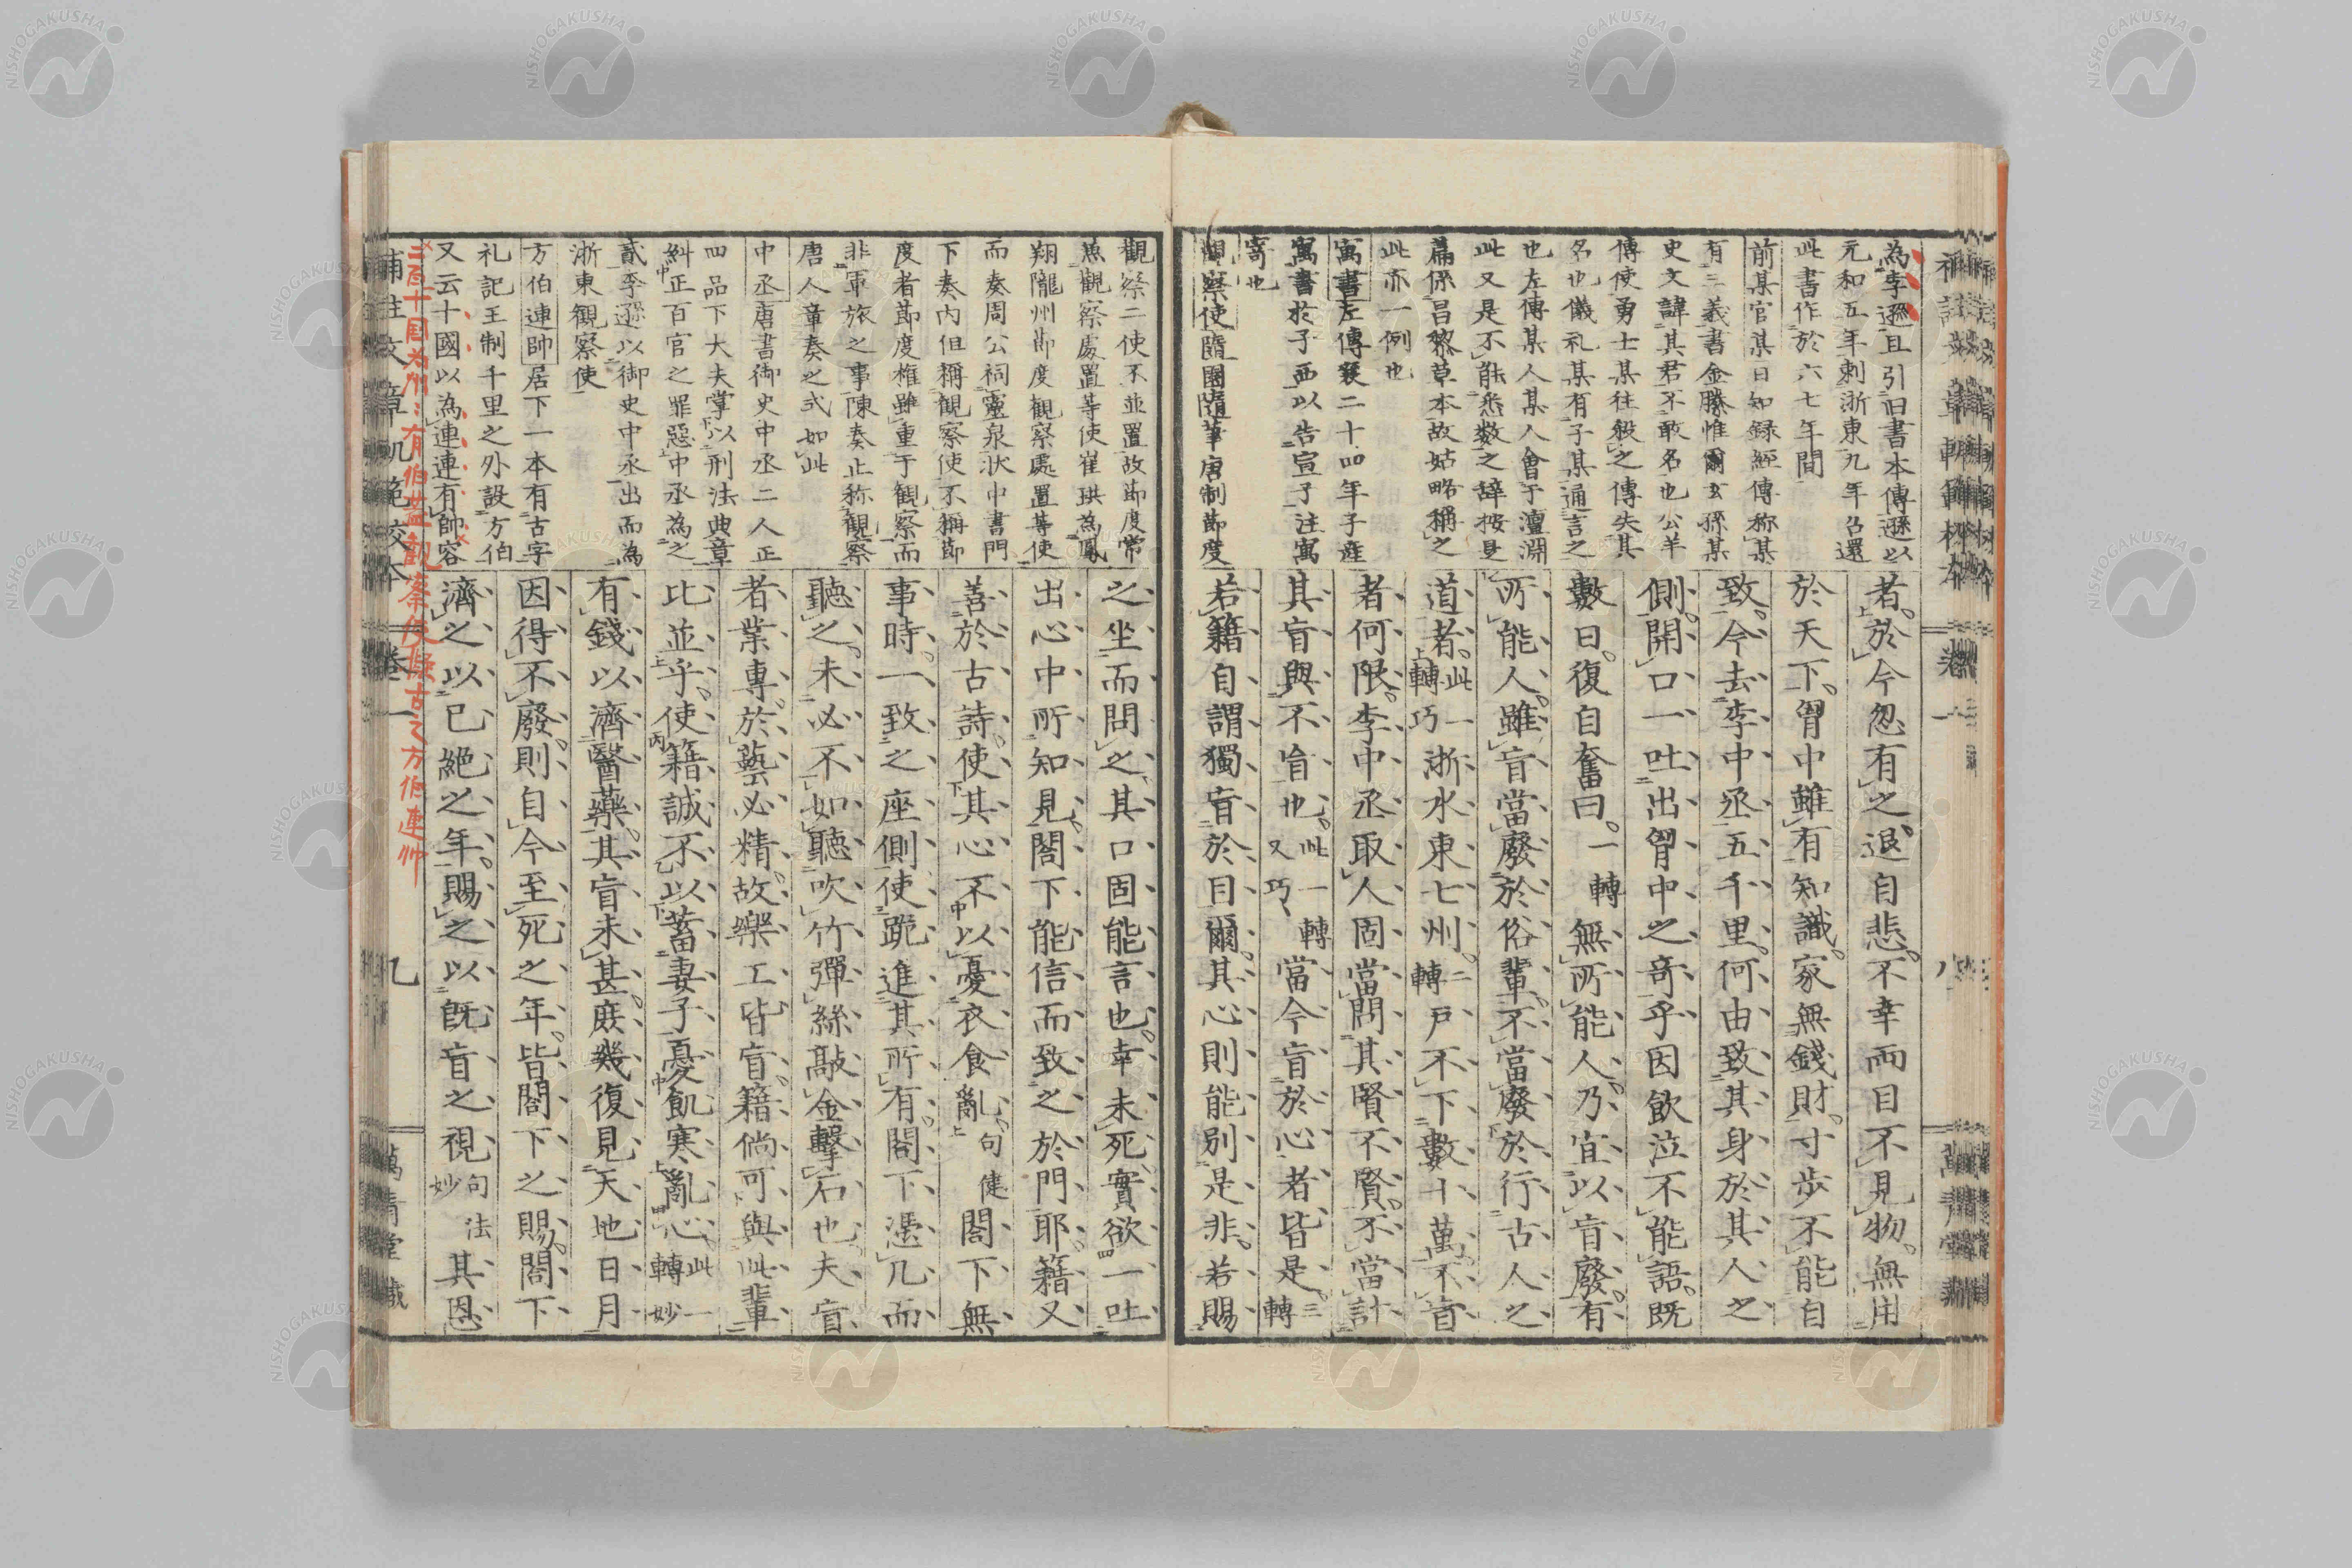 為李遜且引旧書本傳遜以
元和五年刺浙東九年召還
此書作於六七年間
前某官某日知録經傳称某
有三義書金滕惟爾玄孫某
史文諱其君不敢名也公羊
傳使勇士某往殺之傳失其
名也儀礼某有子某通言之
也左傳某人某人會于澶淵
此又是不能悉数之辞按是
篇係昌黎草本故姑略稱之
此亦一例也
寓書左傳襄二十四年子産
寓書於子西以告宣子注寓
寄也
觀察使随園随筆唐制節度
者於今忽有之退自悲不幸兩目不見物無用
於天下胷中雖有知識家無錢財寸步不能自
致今去李中丞五千里何由致其身於其人之
側開口一吐出胷中之奇乎因飲泣不能語既
數日復自奮曰一轉無所能人乃宜以盲廢有
所能人雖盲當廢於俗輩不當廢於行古人之
道者此一轉巧浙水東七州二轉戸不下數十萬不盲
者何限李中丞取人固當問其賢不賢不當計
其盲與不盲也此一轉又巧當今盲於心者皆是三轉
若籍自謂獨盲於目爾其心則能别是非若賜
觀察二使不並置故節度常
兼觀察處置等使崔珙為鳳
翔隴州節度觀察處置等使
而奏周公祠靈泉状中書門
下奏内但稱觀察使不稱節
度者節度権雖重于観察而
非軍旅之事陳奏止称觀察
唐人章奏之式如此
中丞唐書御史中丞二人正
四品下大夫掌以刑法典章
糾正百官之罪惡中丞為之
貳李遜以御史中丞出而為
浙東観察使
方伯連帥居下一本有古字
礼記王制千里之外設方伯
又云十國以為連連有帥容
之坐而問之其口固能言也幸未死實欲一吐
出心中所知見閤下能信而致之於門耶籍又
善於古詩使其心不以憂衣食亂句健閤下無
事時一致之座側使跪進其所有閤下憑几而
聽之未必不如聽吹竹彈絲敲金擊石也夫盲
者業專於藝必精故樂工皆盲籍倘可與此輩
比並乎使籍誠不以蓄妻子憂飢寒亂心此一轉妙
有錢以濟醫藥其盲未甚庶幾復見天地日月
因得不廢則自今至死之年皆閤下之賜閤下
濟之以已絶之年賜之以既盲之視句法妙其恩
二百十国為州州有伯蓋観察使擬古之方伯連帥
九